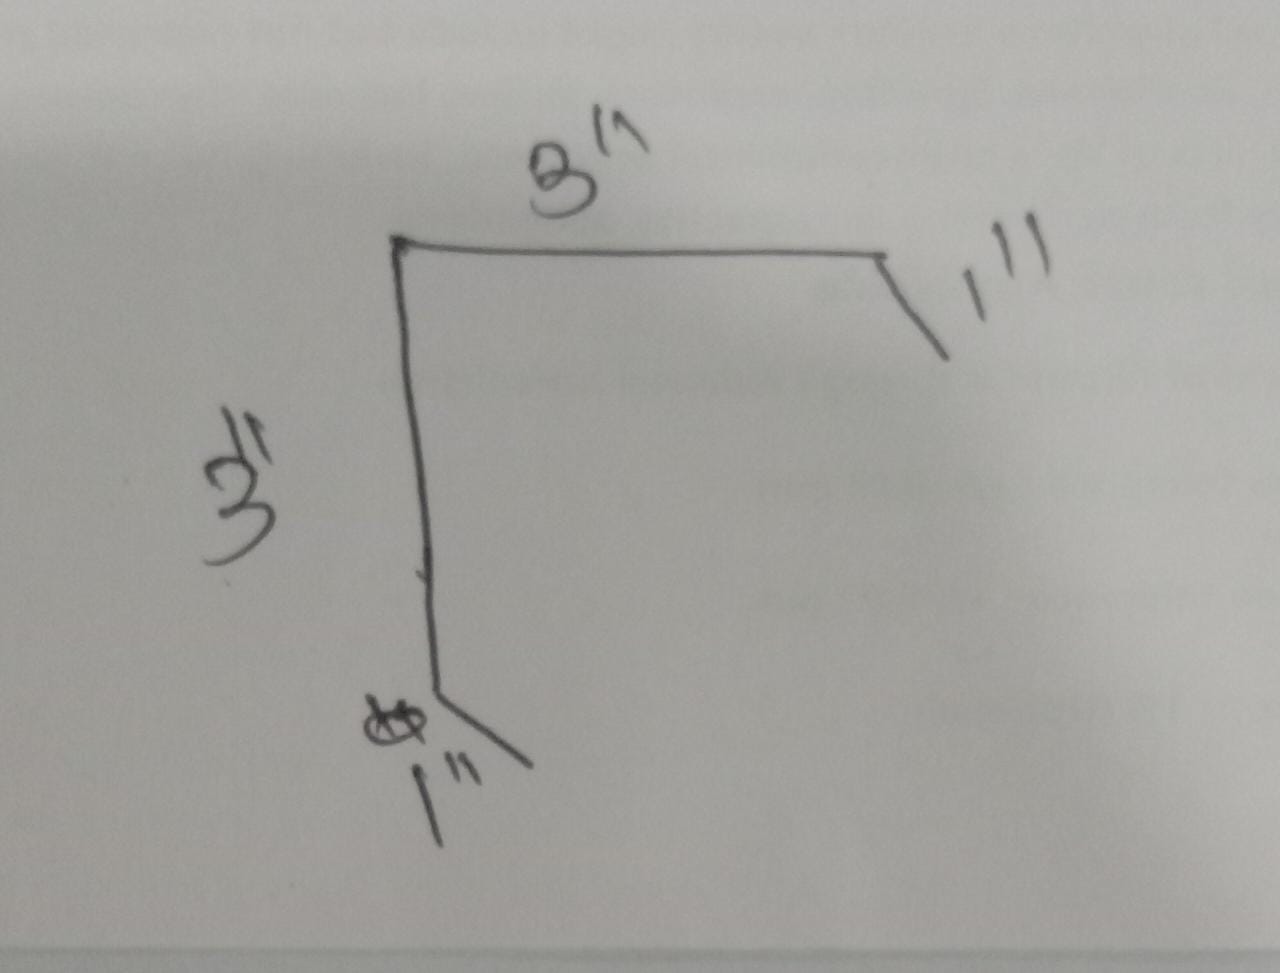 3"
1"
3"
1"